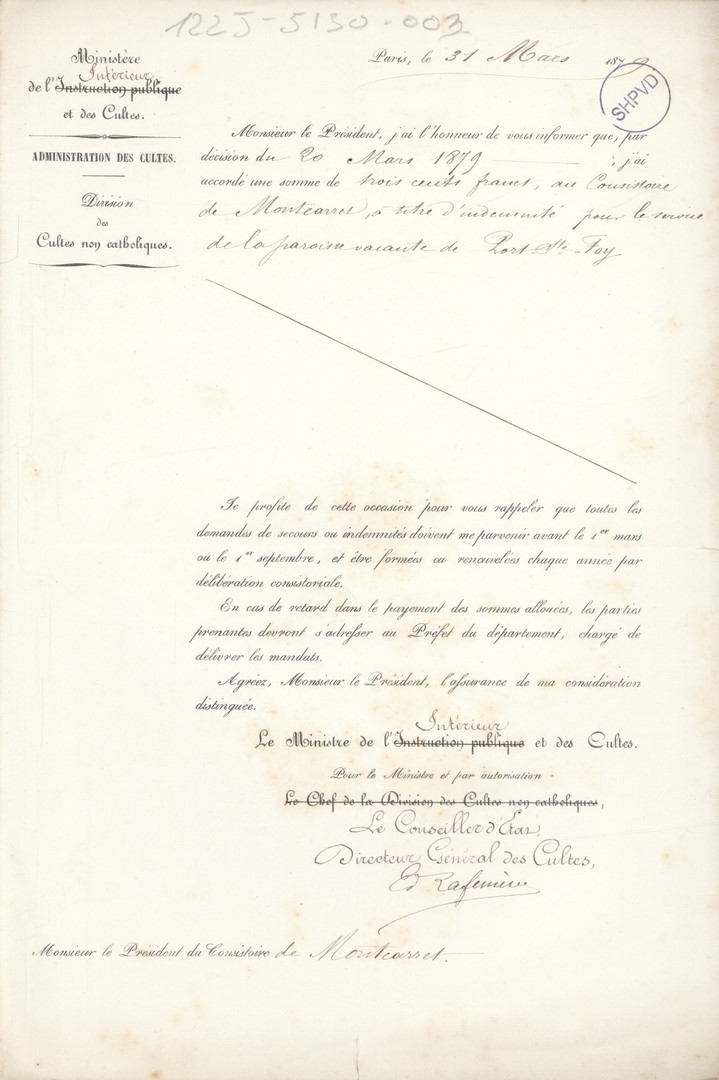 122J-5130-003
Ministère
Intérieur
de l'Instruction publique
et des Cultes.
ADMINISTRATION DES CULTES.
Division
des
Cultes non catholiques.
Paris, le 31 Mars 1879
SHPVD
Monsieur le Président, j'ai l'honneur de vous informer que, par
décision du 20 Mars 1879 ; j'ai
accordé une somme de trois cents francs, au Consistoire
de Montcarret, à titre d'indemnité pour le service
de la paroisse vacante de Port-Ste-Foy
Je profite de cette occasion pour vous rappeler que toutes les
demandes de secours ou indemnités doivent me parvenir avant le 1er mars
ou le 1er septembre, et être formées ou renouvelées chaque année par
délibération consistoriale.
En cas de retard dans le payement des sommes allouées, les parties
prenantes devront s'adresser au Préfet du département, chargé de
délivrer les mandats.
Agréez, Monsieur le Président, l'assurance de ma considération
distinguée.
Intérieur
Le Ministre de l'Instruction publique et des Cultes.
Pour le Ministre et par autorisation
Le Chef de la Division des Cultes non catholiques,
Le Conseiller d'Etat,
Directeur Général des Cultes,
Ed Laferrière
Monsieur le Président du Consistoire de Montcarret.